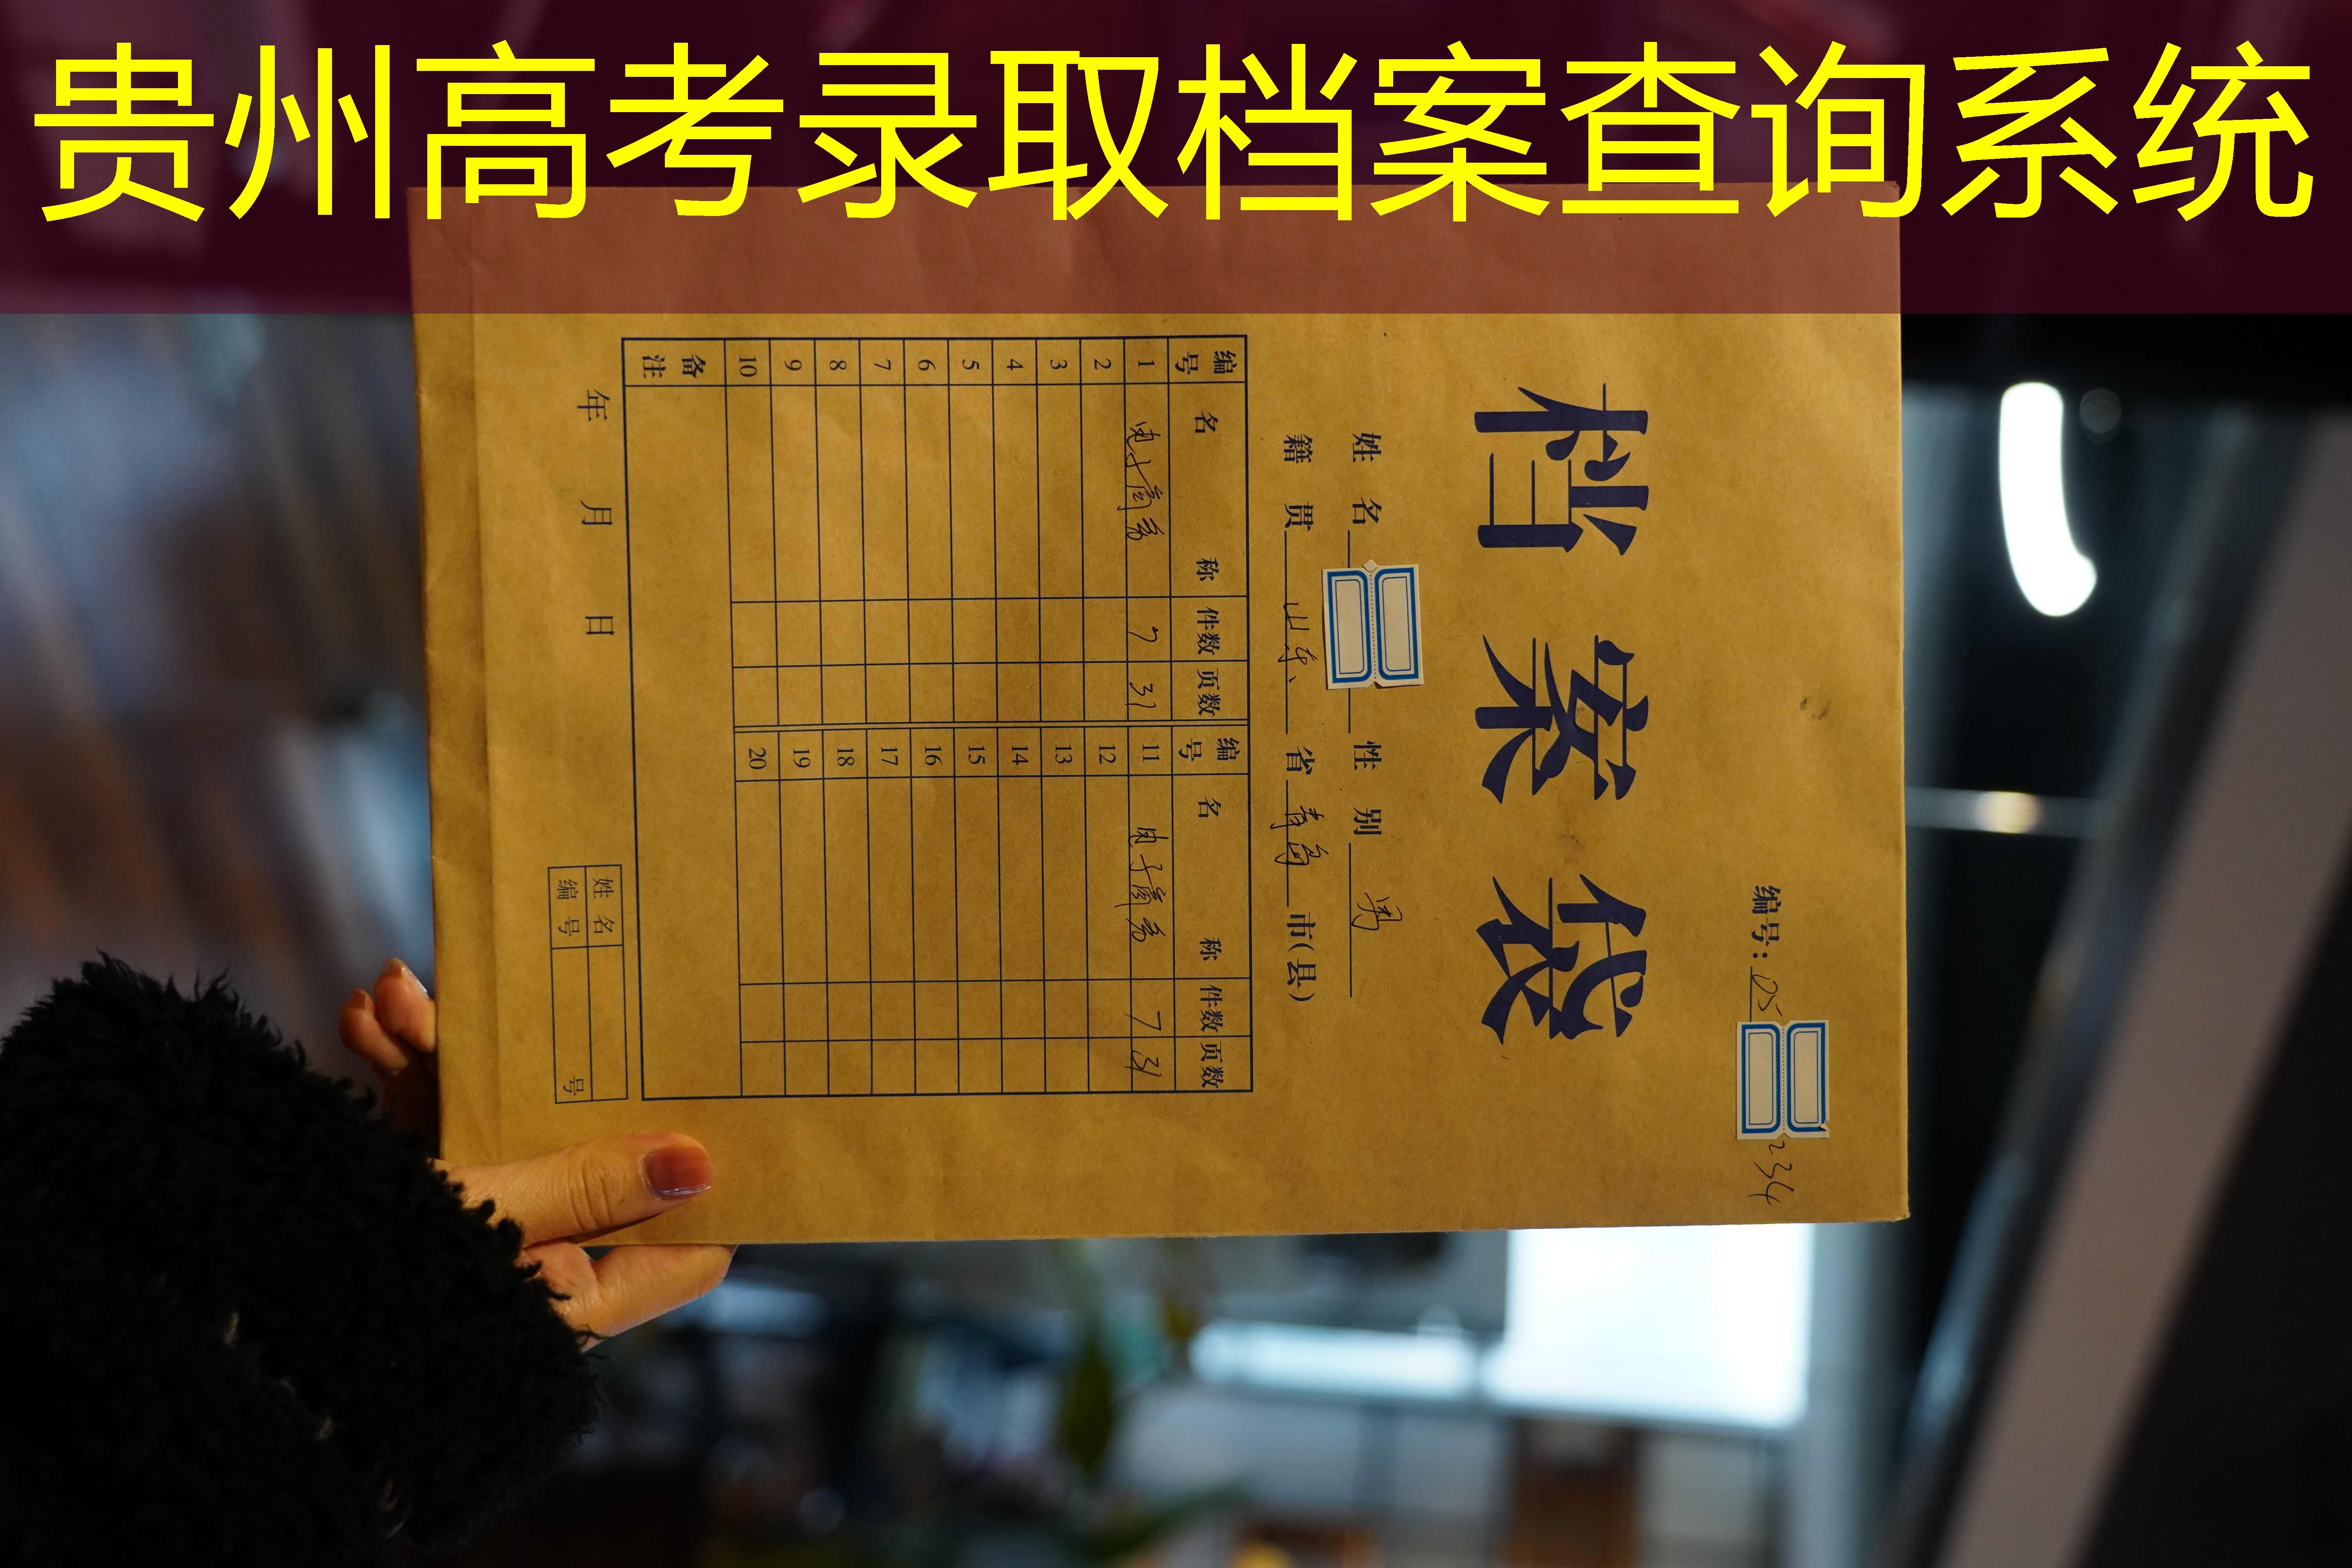 贵州高考录取档案查询系统
编号：05
234
档案袋
姓名 性别 男
籍贯 山东 省 青岛 市(县)
编号 名称 件数 页数 编号 名称 件数 页数
1 电子商务 7 31 11 电子商务 7 31
2 12
3 13
4 14
5 15
6 16
7 17
8 18
9 19
10 20
备注
年 月 日
姓名
编号 号